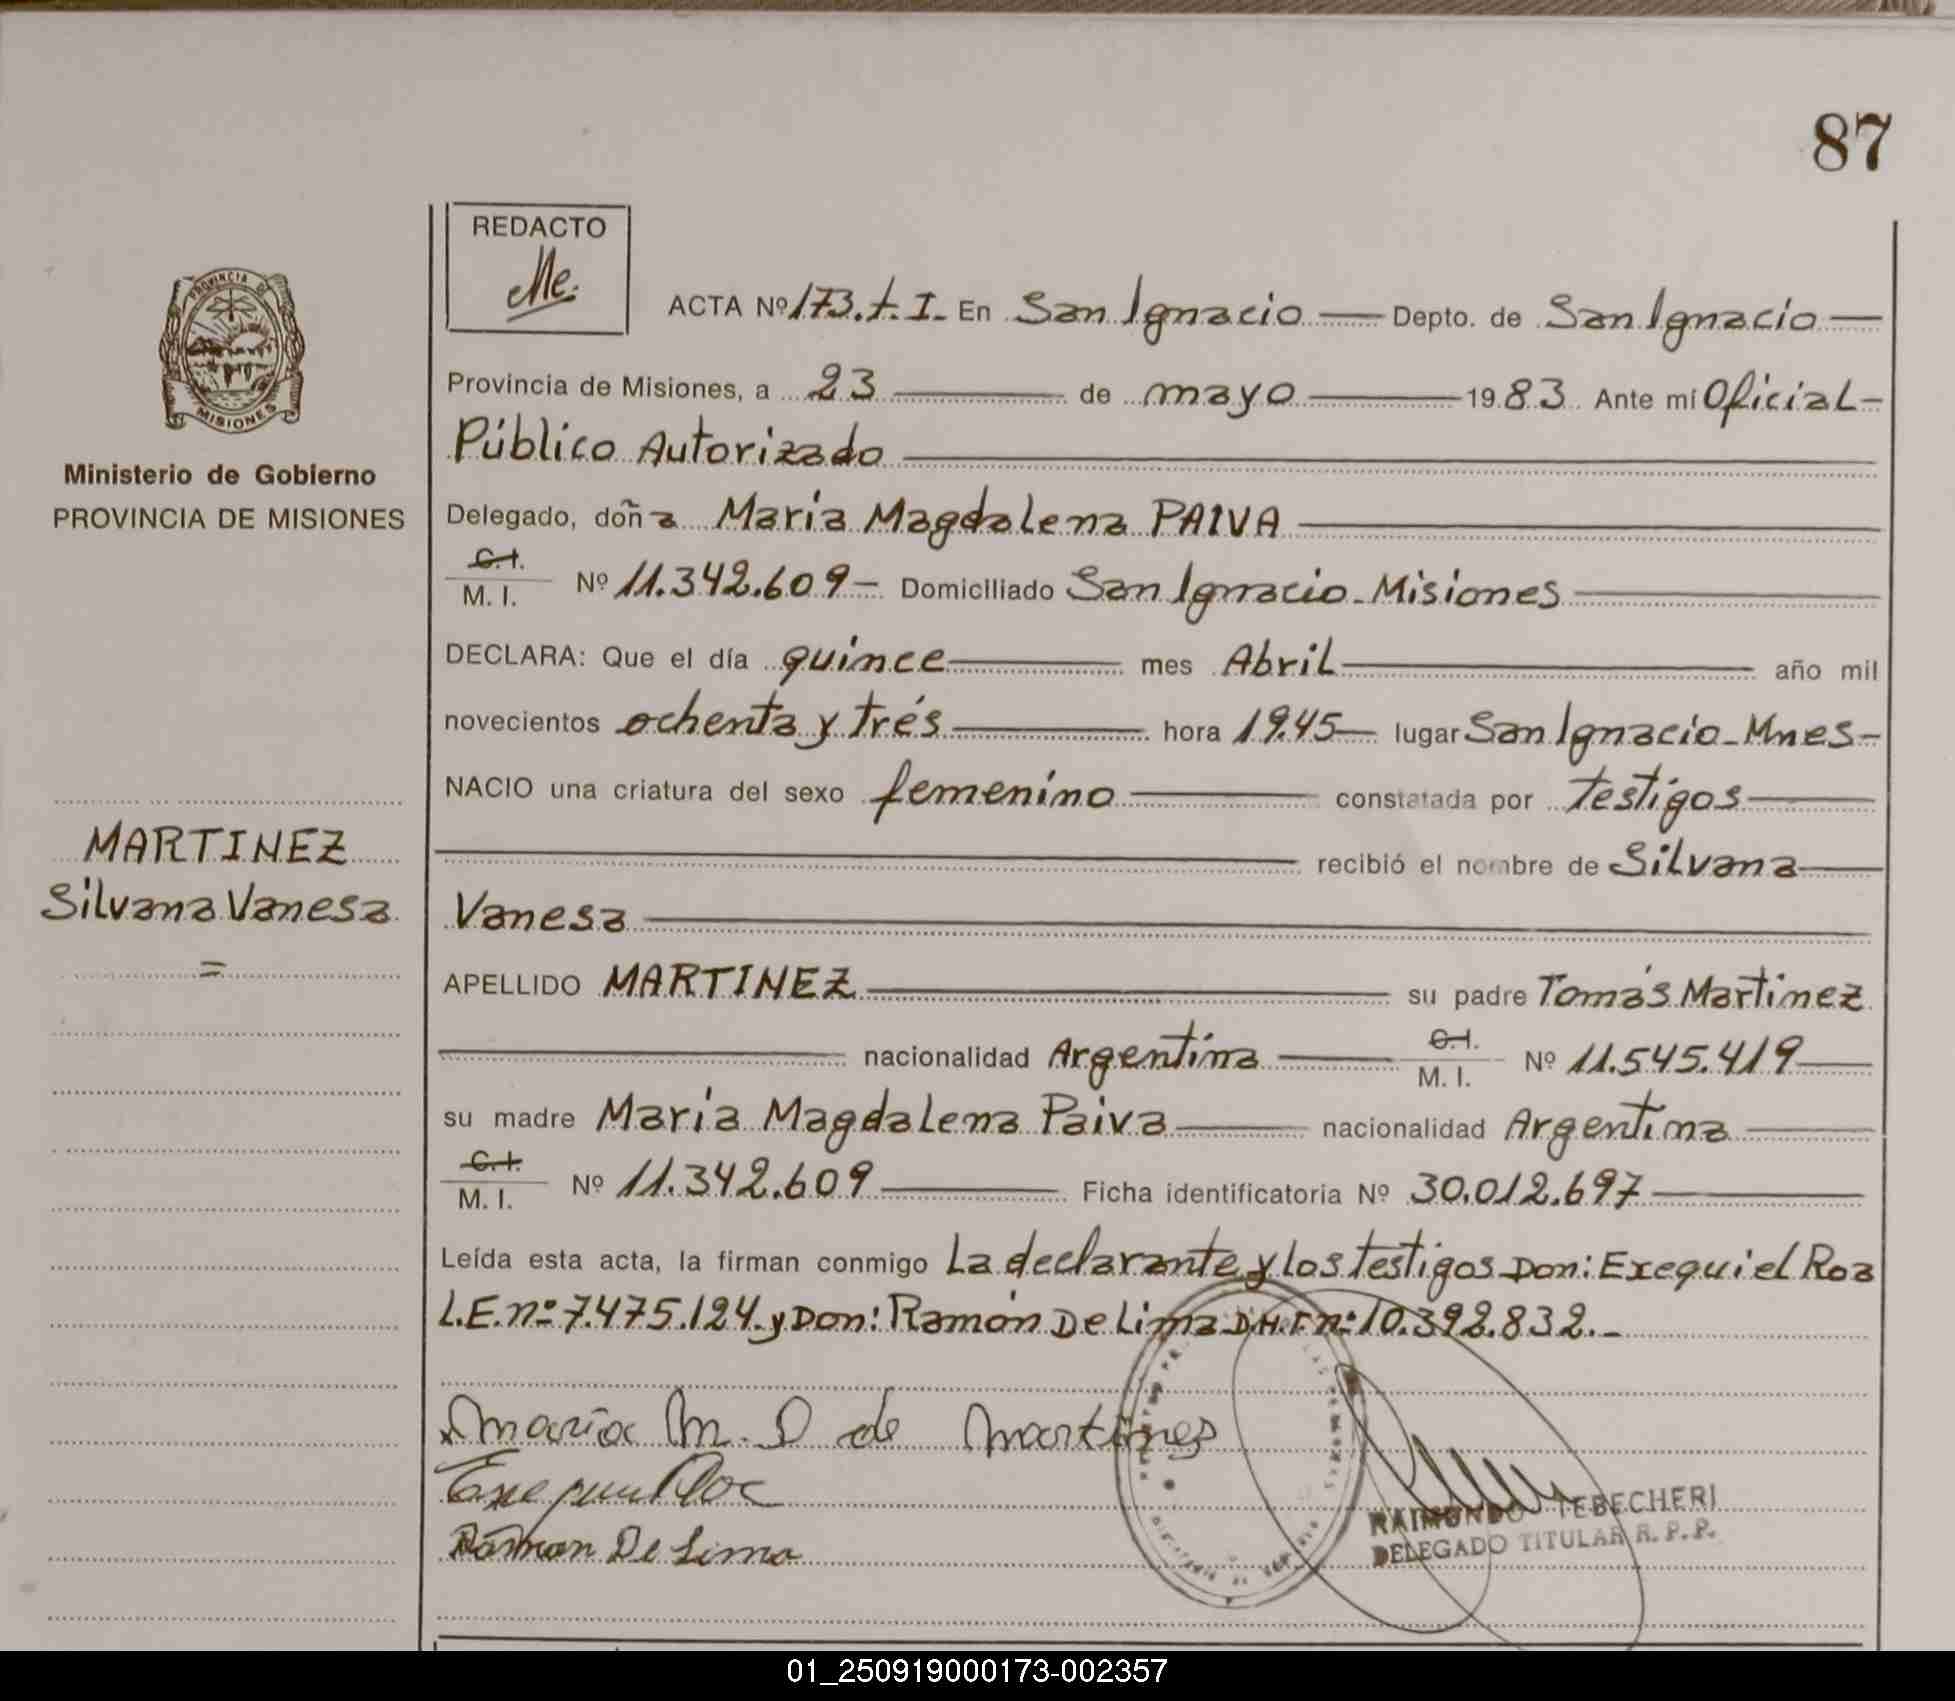 87
REDACTO
Me.
PROVINCIA DE
MISIONES
Ministerio de Gobierno
PROVINCIA DE MISIONES
MARTINEZ
Silvana Vanesa
=
ACTA Nº 173.t.I. En San Ignacio — Depto. de San Ignacio —
Provincia de Misiones, a 23 — de mayo — 19 83 Ante mí Oficial -
Público Autorizado —
Delegado, doña María Magdalena PAIVA —
C.I. M.I. Nº 11.342.609 - Domiciliado San Ignacio - Misiones —
DECLARA: Que el día quince — mes Abril — año mil
novecientos ochenta y trés — hora 19.45 — lugar San Ignacio - Mnes -
NACIO una criatura del sexo femenino — constatada por testigos —
— recibió el nombre de Silvana —
Vanesa —
APELLIDO MARTINEZ — su padre Tomás Martinez
— nacionalidad Argentina — C.I. M.I. Nº 11.545.419 —
su madre María Magdalena Paiva — nacionalidad Argentina —
C.I. M.I. Nº 11.342.609 — Ficha identificatoria Nº 30.012.697 —
Leída esta acta, la firman conmigo La declarante y los testigos Don: Exequiel Roa
L.E. nº 7.475.124 y Don: Ramón De Lima D.N.I nº 10.392.832. -
x María M. P de Martines
Ramon De Lima
RAIMUNDO TEBECHERI
DELEGADO TITULAR R.P.P.
01_250919000173-002357